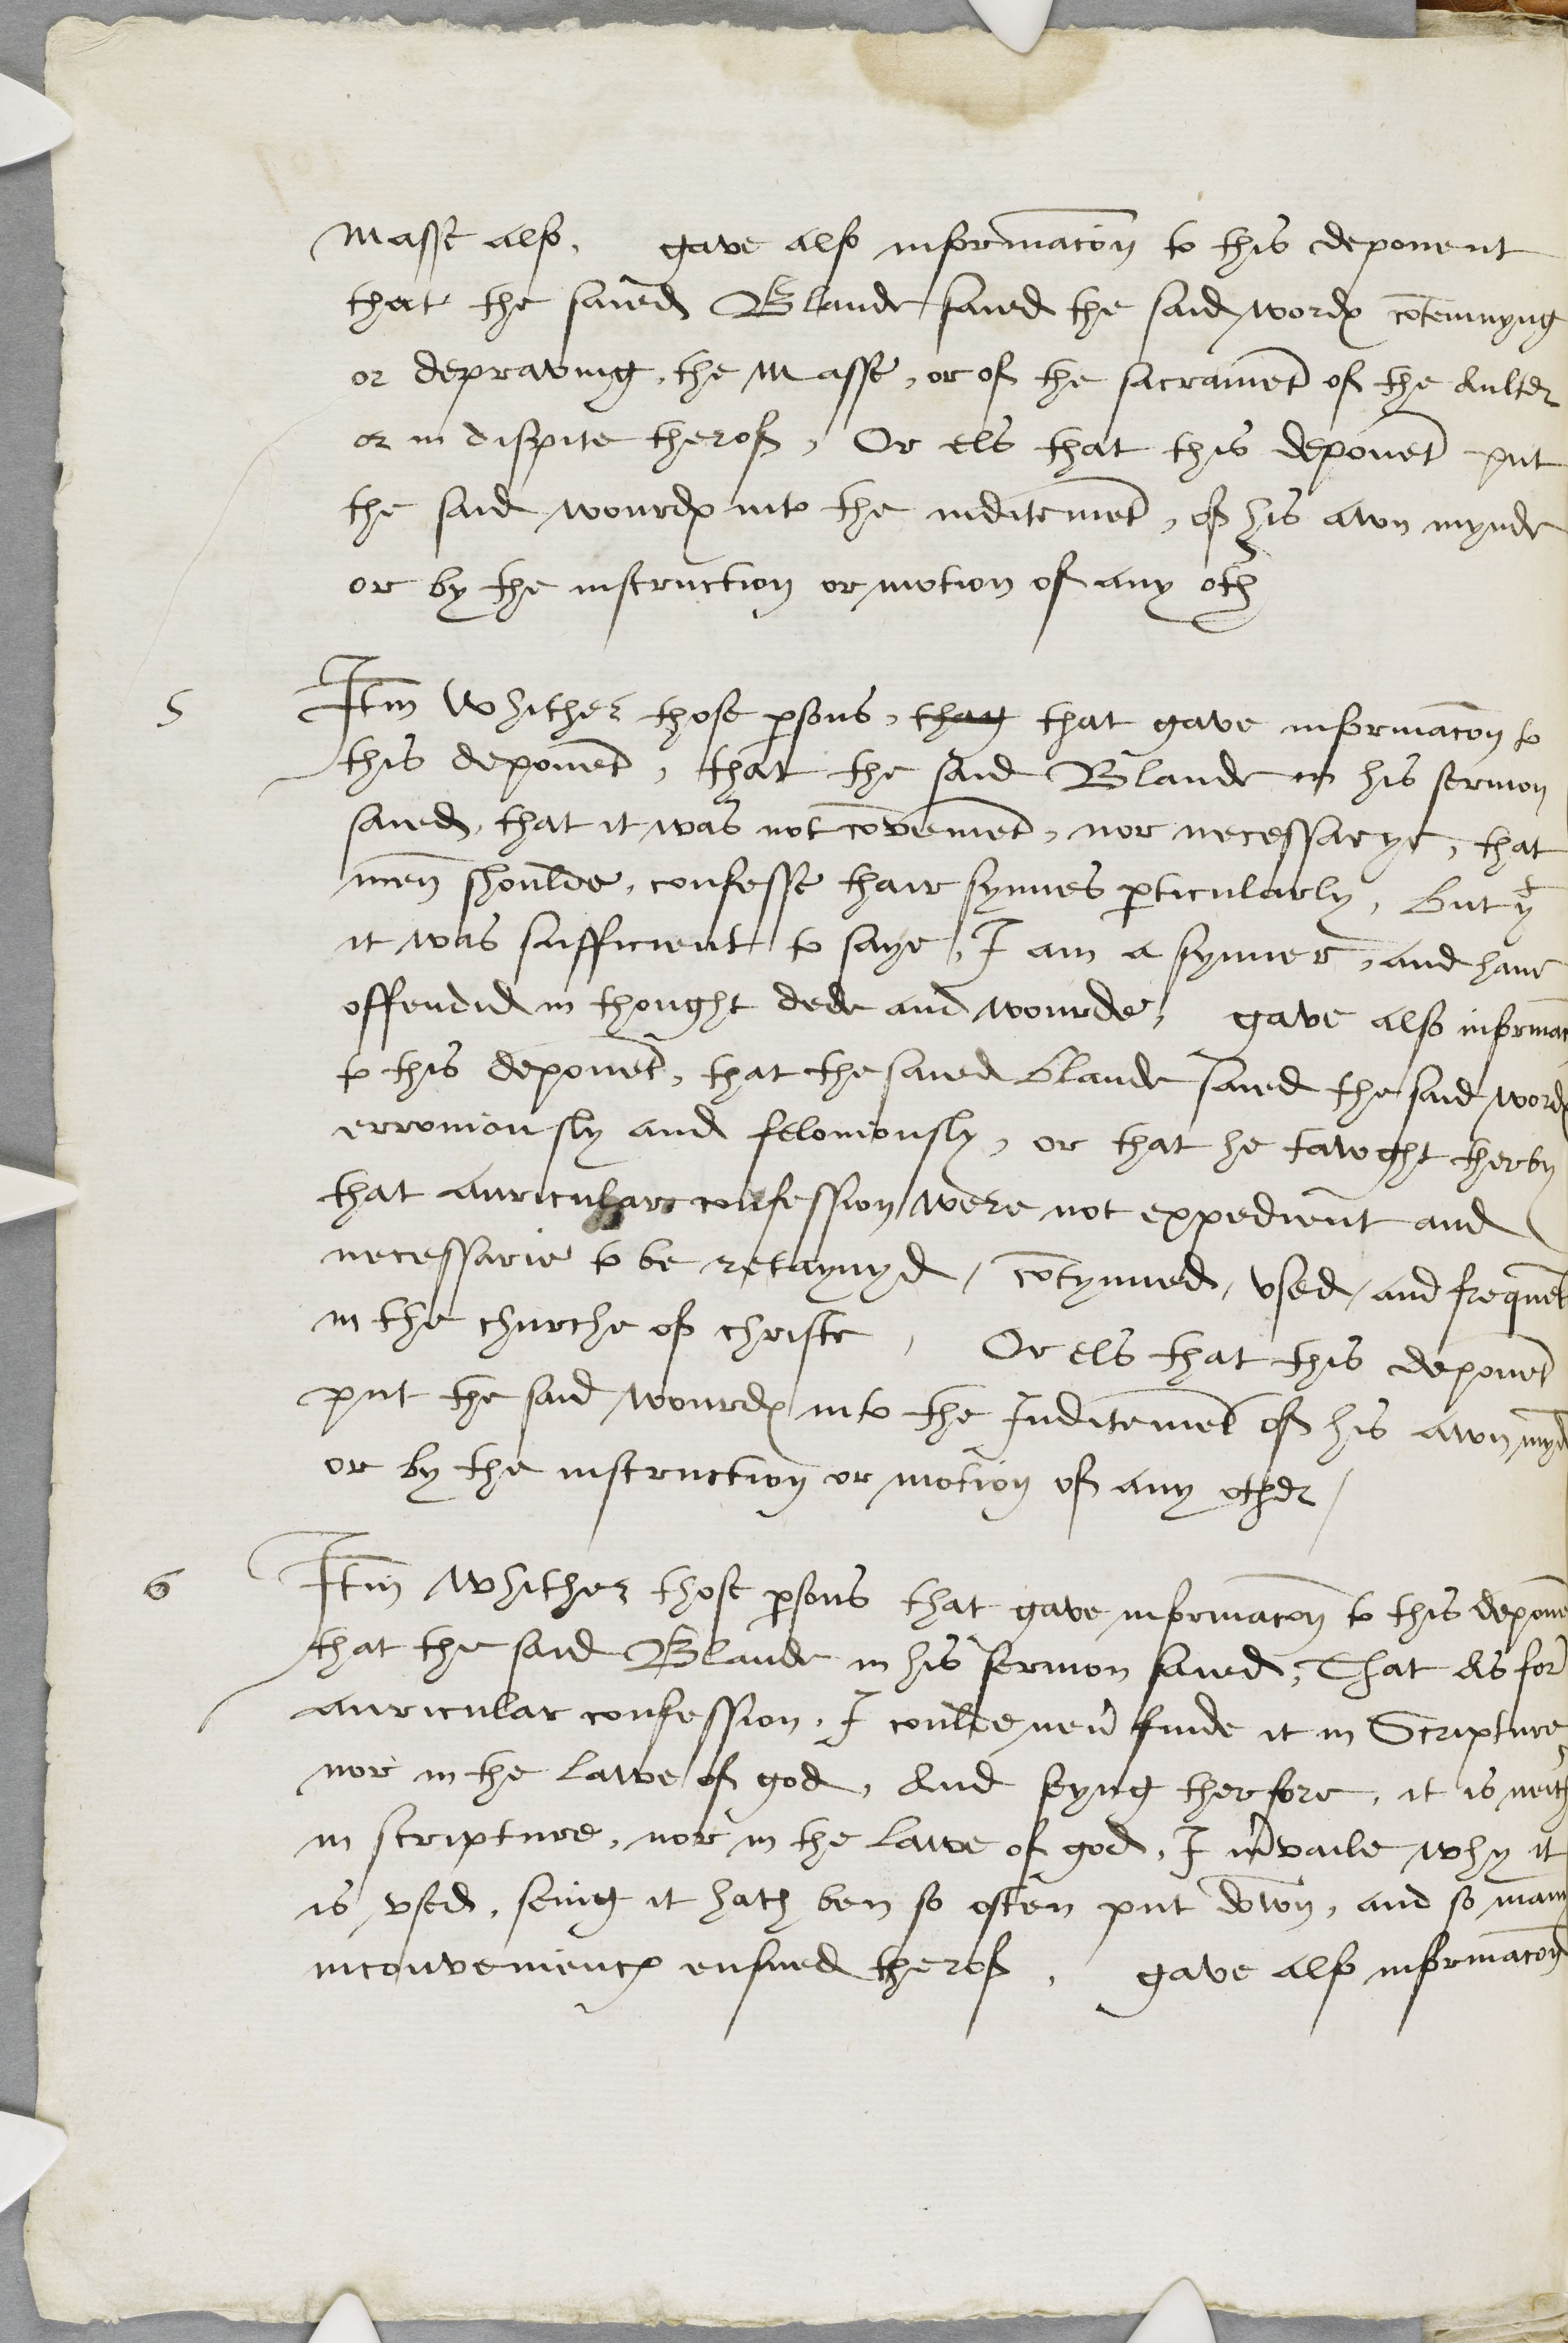 Masse also, gave also informacion to this deponent
that the saied Blande saied the said wordℯ cōtemnyng
or depraving, the Masse, or of the sacramēt of the Aulter
or in dispite therof, Or els that this deponēt put
the said wourdℯ into the inditemēt, of his awn mynde
or by the instruction or motion of any oth
5 Itm Whither those psons, thay that gave informacōn to
this deponēt, that the said Blande in his sermon
saied, that it was not cōveniēt, nor necessarye, that
men shoulde, confesse thair synnes pticularly, but yt
it was sufficient to saye, I am a synner, and have
offendid in thought dede and wourde, gave also informac
to this deponēt, that the saied Blande saied the said wordℯ
erroniously and feloniously, or that he tawght therby
that auricular confession were not expedient and
necessarie to be retaynyd, cōtynued, vsed, and frequēt
in the churche of christe, Or els that this deponēt
put the said wourdℯ into the Inditemēt of his awn mynd
or by the instruction or motion of any other
6 Itm Whither those psons that gave informacōn to this depone
that the said Blande in his sermon saied, That As for
auricular confession, I coulde nev finde it in Scripture
nor in the lawe of god, And seyng therfore, it is neith
in scripture, nor in the lawe of god, I mvaile why it
is vsed, seing it hath ben so often put down, and so many
inconveniencℯ ensued therof, gave also informacōn